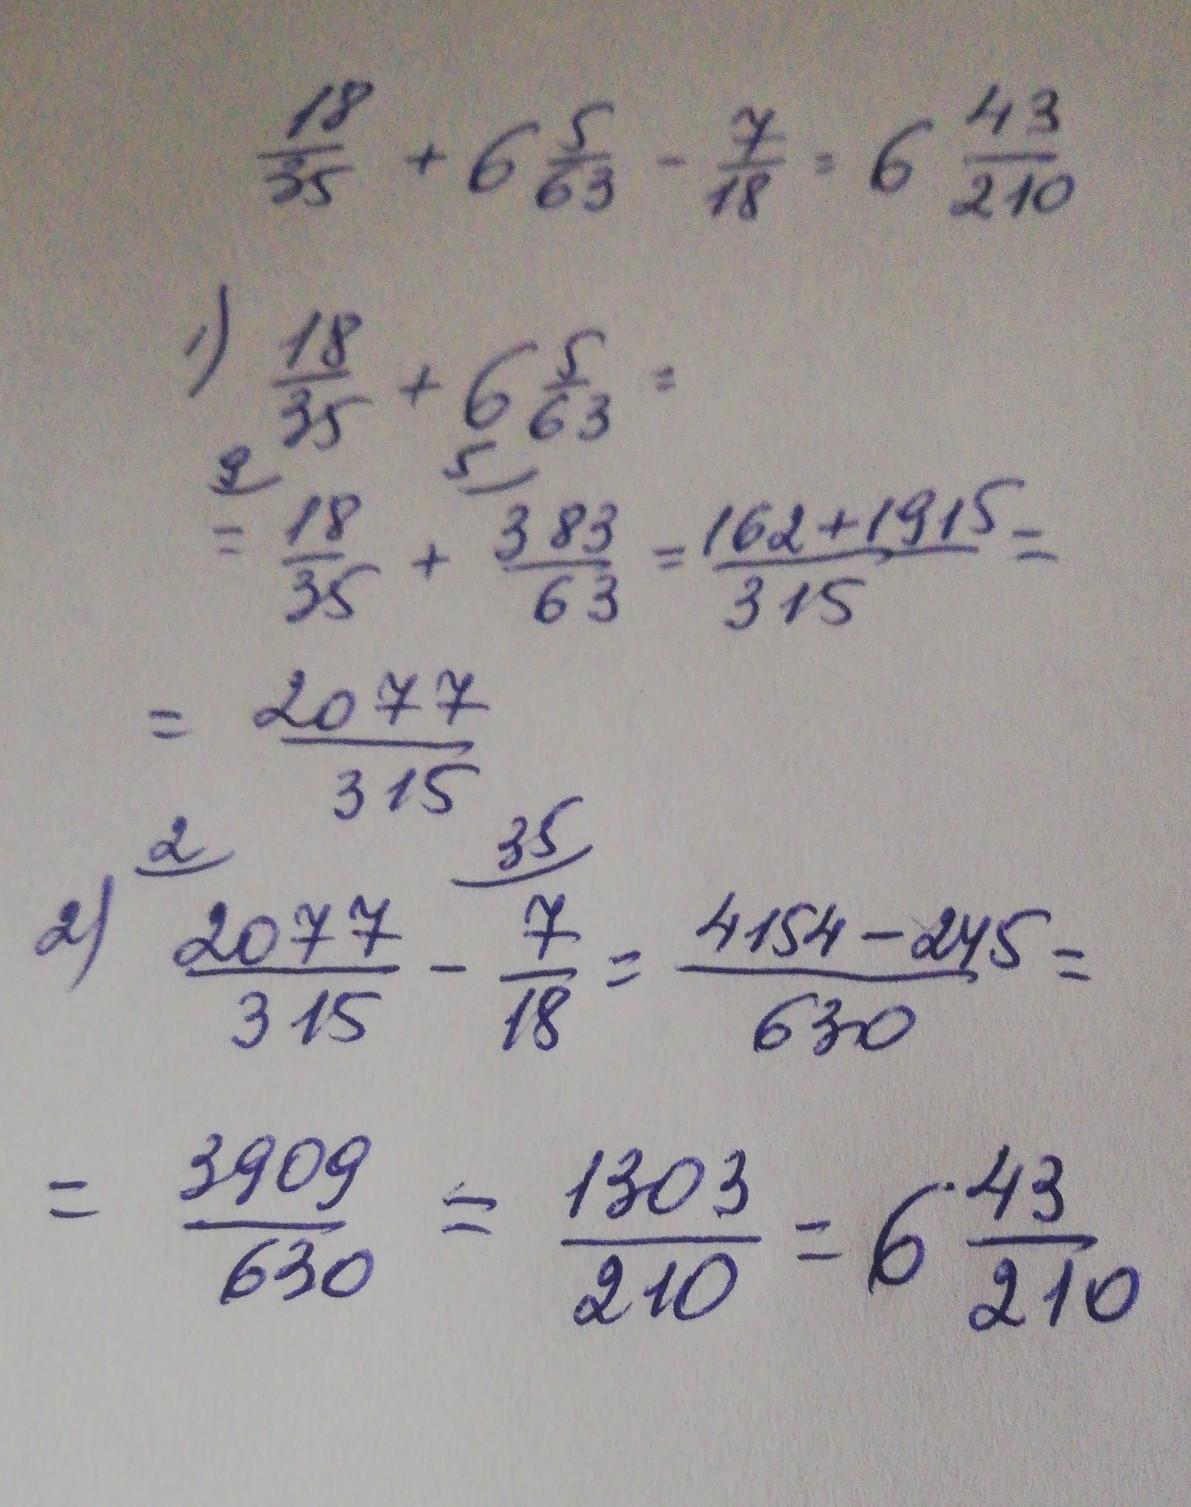 18/35 + 6 5/63 - 7/18 = 6 43/210
1) 18/35 + 6 5/63 =
9 5
= 18/35 + 383/63 = 162+1915/315 =
= 2077/315
2 35
2) 2077/315 - 7/18 = 4154-245/630 =
= 3909/630 = 1303/210 = 6 43/210